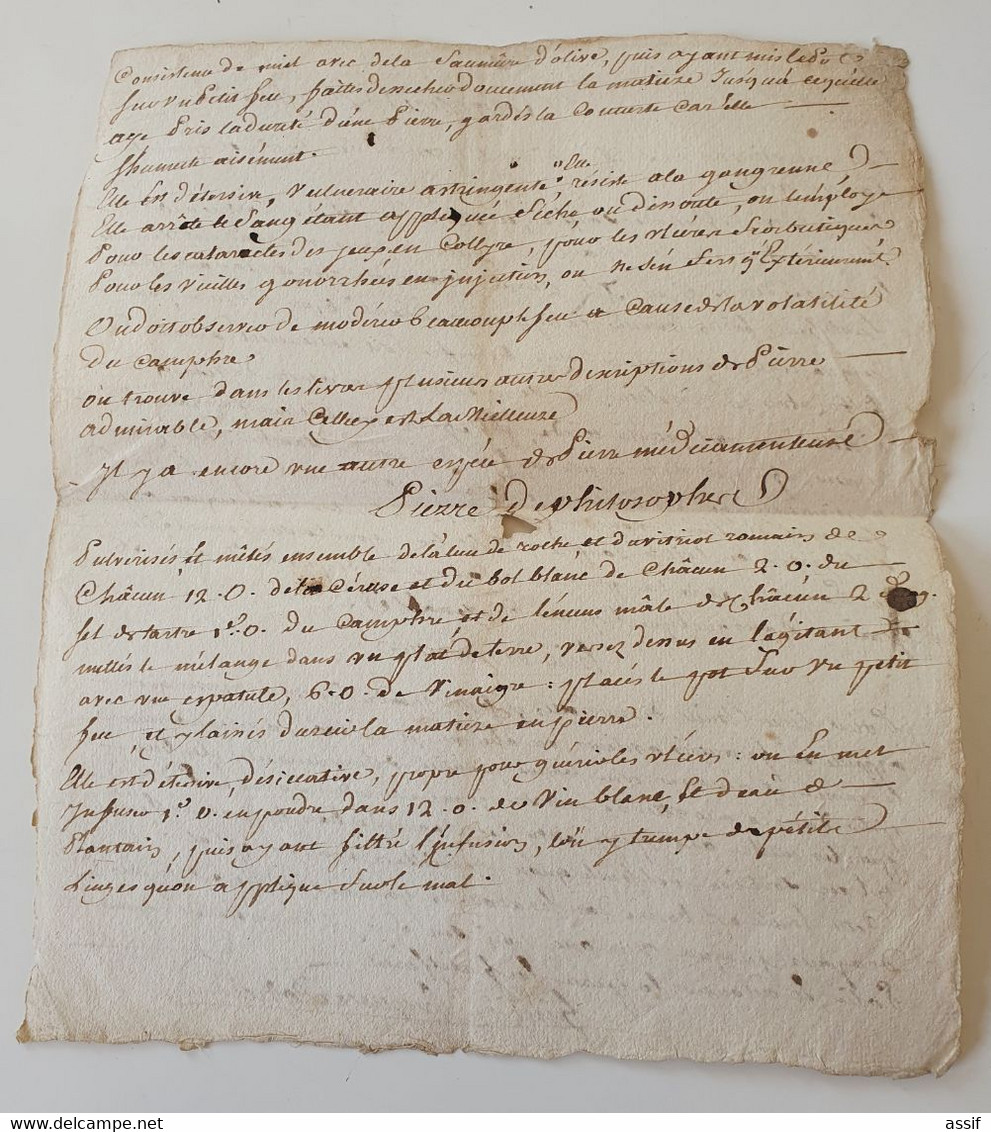 Consistence de miel avec dela Saumure d'olive, puis ayant mis le Pot
sur un Petit feu, faittes dessecher doucement la matiere Jusqu'à ce qu'elle
aye Pris la dureté d'une Pierre, gardés la Couverte Car elle
s'humecte aisément.
Elle Est détersive, vulneraire astringente, Elle résiste a la gangrenne,
Elle arrête le Sang étant appliquée Séche ou dissoute, on l'employe
Pour les cataractes des yeux en Collyre, pour les vlcéres Scorbutiques
Pour les vieilles gonorrhées en injection, on ne s'en sert qu'Extérieurement.
On doit observer de modérer beaucoup le feu a Cause de la volatilité
du Camphre
on trouve dans les livres plusieurs autres descriptions de Pierre
admirable, mais Celle cy est La Meilleure
Il y a encore une autre espéce de Pierre médicamenteuse
Pierre de philosophes
Pulverisés et mêlés ensemble de l'alun de roche et du vitriol romain de
Châcun 12. O. de la Céruse et du bol blanc de Châcun 2. O. du
sel de tartre 1. O. du Camphre et de l'encens mâle de Châcun 2
mettés le mélange dans vn plat de terre, versez dessus en l'agitant
avec vne espatule, 6. O. de Vinaigre: placés le pot sur vn petit
feu, et y laisés durcir la matiere en pierre.
Elle est détersive, désiccative, propre pour guérir les vlcéres: on En met
Infuser 1. O. en poudre dans 12. O. de Vin blanc, Et d'eau de
Plantain, puis ayant filtré l'infusion, l'on y trempe de pétits
Linges qu'on applique sur le mal.
assif